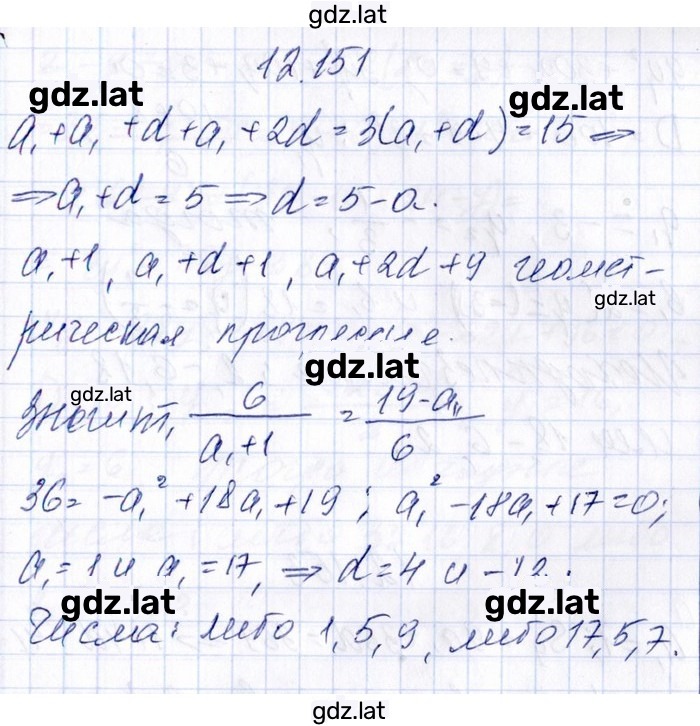 gdz.lat
12.151
gdz.lat gdz.lat
a₁+a₁+d+a₁+2d=3(a₁+d)=15 ⇒
⇒ a₁+d=5 ⇒ d=5-a.
a₁+1, a₁+d+1, a₁+2d+9 геомет-
gdz.lat
рическая прогрессия.
gdz.lat
gdz.lat
Значит, 6/(a₁+1) = (19-a₁)/6
36=-a₁²+18a₁+19; a₁²-18a₁+17=0;
a₁=1 и a₁=17, ⇒ d=4 и -12.
gdz.lat gdz.lat
Числа: либо 1, 5, 9, либо 17, 5, 7.
gdz.lat